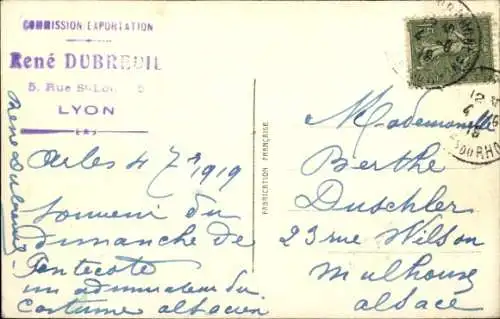 COMMISSION-EXPORTATION
René DUBREUIL
5, Rue St-Lou
LYON
René Dubreuil
Arles 4 7 1919
Souvenir du
dimanche de
Pentecote
un admirateur du
costume alsacien
FABRICATION FRANÇAISE
Mademoiselle
Berthe
Duschler
23 rue Wilson
Mulhouse
alsace
12
DU RHO